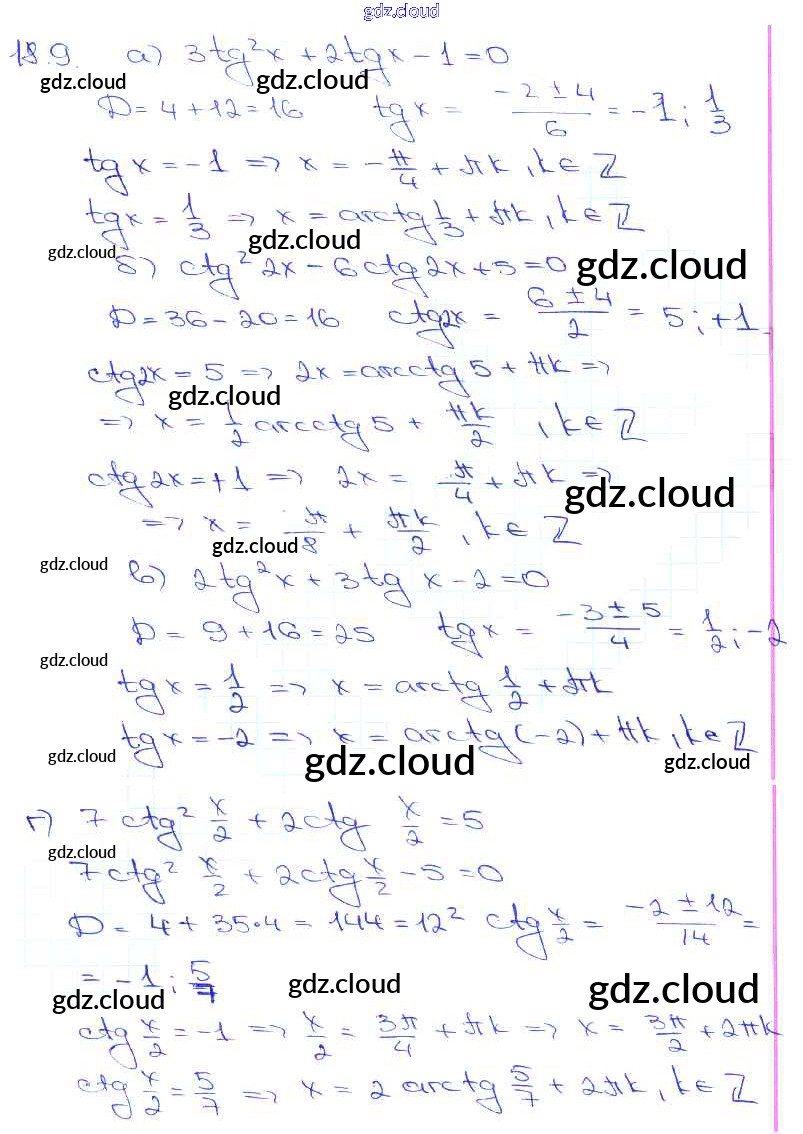 gdz.cloud
18.9. а) 3tg²x + 2tgx - 1 = 0
gdz.cloud gdz.cloud gdz.cloud
D = 4 + 12 = 16 tgx = (-2 ± 4)/6 = -1; 1/3
tgx = -1 => x = -π/4 + πk, k ∈ Z
tgx = 1/3 => x = arctg 1/3 + πk, k ∈ Z
gdz.cloud gdz.cloud
б) ctg² 2x - 6 ctg 2x + 5 = 0
gdz.cloud
D = 36 - 20 = 16 ctg2x = (6 ± 4)/2 = 5; +1
ctg2x = 5 => 2x = arcctg 5 + πk =>
gdz.cloud
=> x = 1/2 arcctg 5 + πk/2, k ∈ Z
ctg 2x = +1 => 2x = π/4 + πk =>
gdz.cloud
=> x = π/8 + πk/2, k ∈ Z
gdz.cloud gdz.cloud
в) 2tg²x + 3tg x - 2 = 0
D = 9 + 16 = 25 tgx = (-3 ± 5)/4 = 1/2; -2
gdz.cloud
tgx = 1/2 => x = arctg 1/2 + πk
tgx = -2 => x = arctg(-2) + πk, k ∈ Z
gdz.cloud gdz.cloud gdz.cloud
г) 7 ctg² x/2 + 2ctg x/2 = 5
gdz.cloud
7ctg² x/2 + 2ctg x/2 - 5 = 0
D = 4 + 35·4 = 144 = 12² ctg x/2 = (-2 ± 12)/14 =
= -1; 5/7
gdz.cloud gdz.cloud gdz.cloud
ctg x/2 = -1 => x/2 = 3π/4 + πk => x = 3π/2 + 2πk
ctg x/2 = 5/7 => x = 2 arcctg 5/7 + 2πk, k ∈ Z